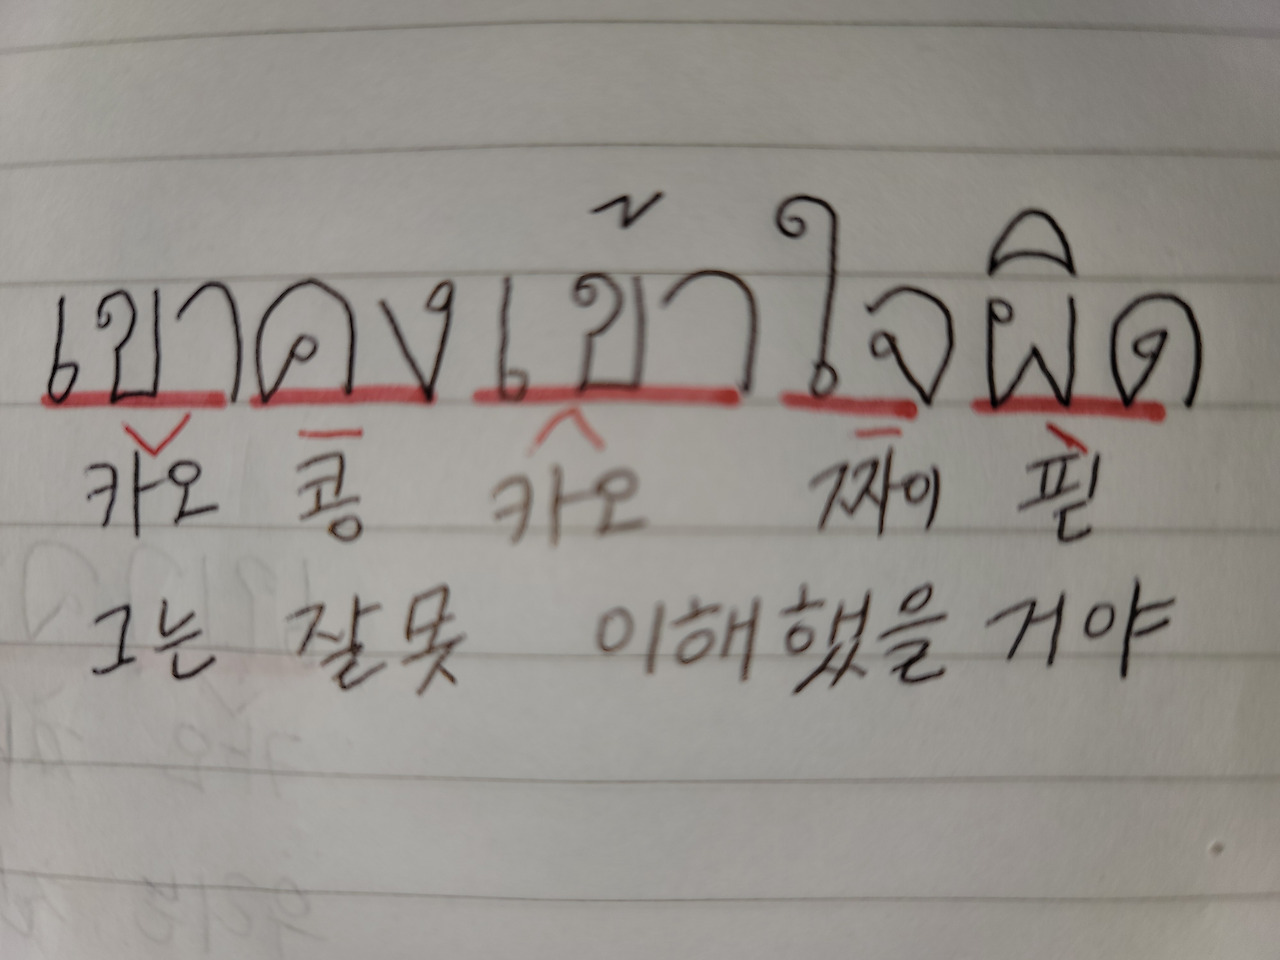 เขาคงเข้าใจผิด
카오 콩 카오 짜이 핃
그는 잘못 이해했을 거야